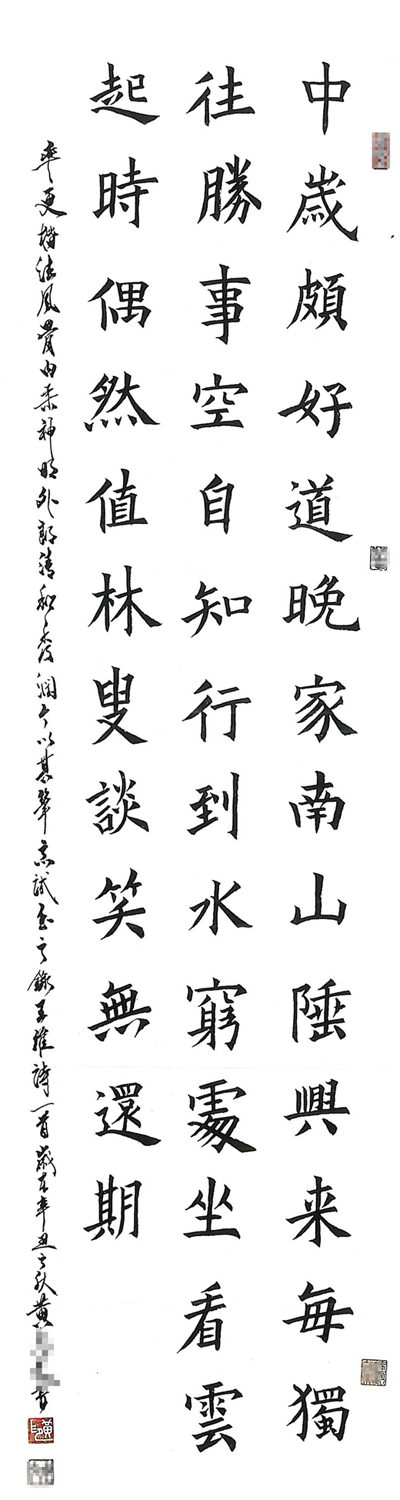 中歲頗好道晚家南山陲興来每獨
往勝事空自知行到水窮處坐看雲
起時偶然值林叟談笑無還期
率更楷法風骨内柔神明外朗清和秀潤今以其筆意試書之錄王維詩一首歲在辛丑之秋黃